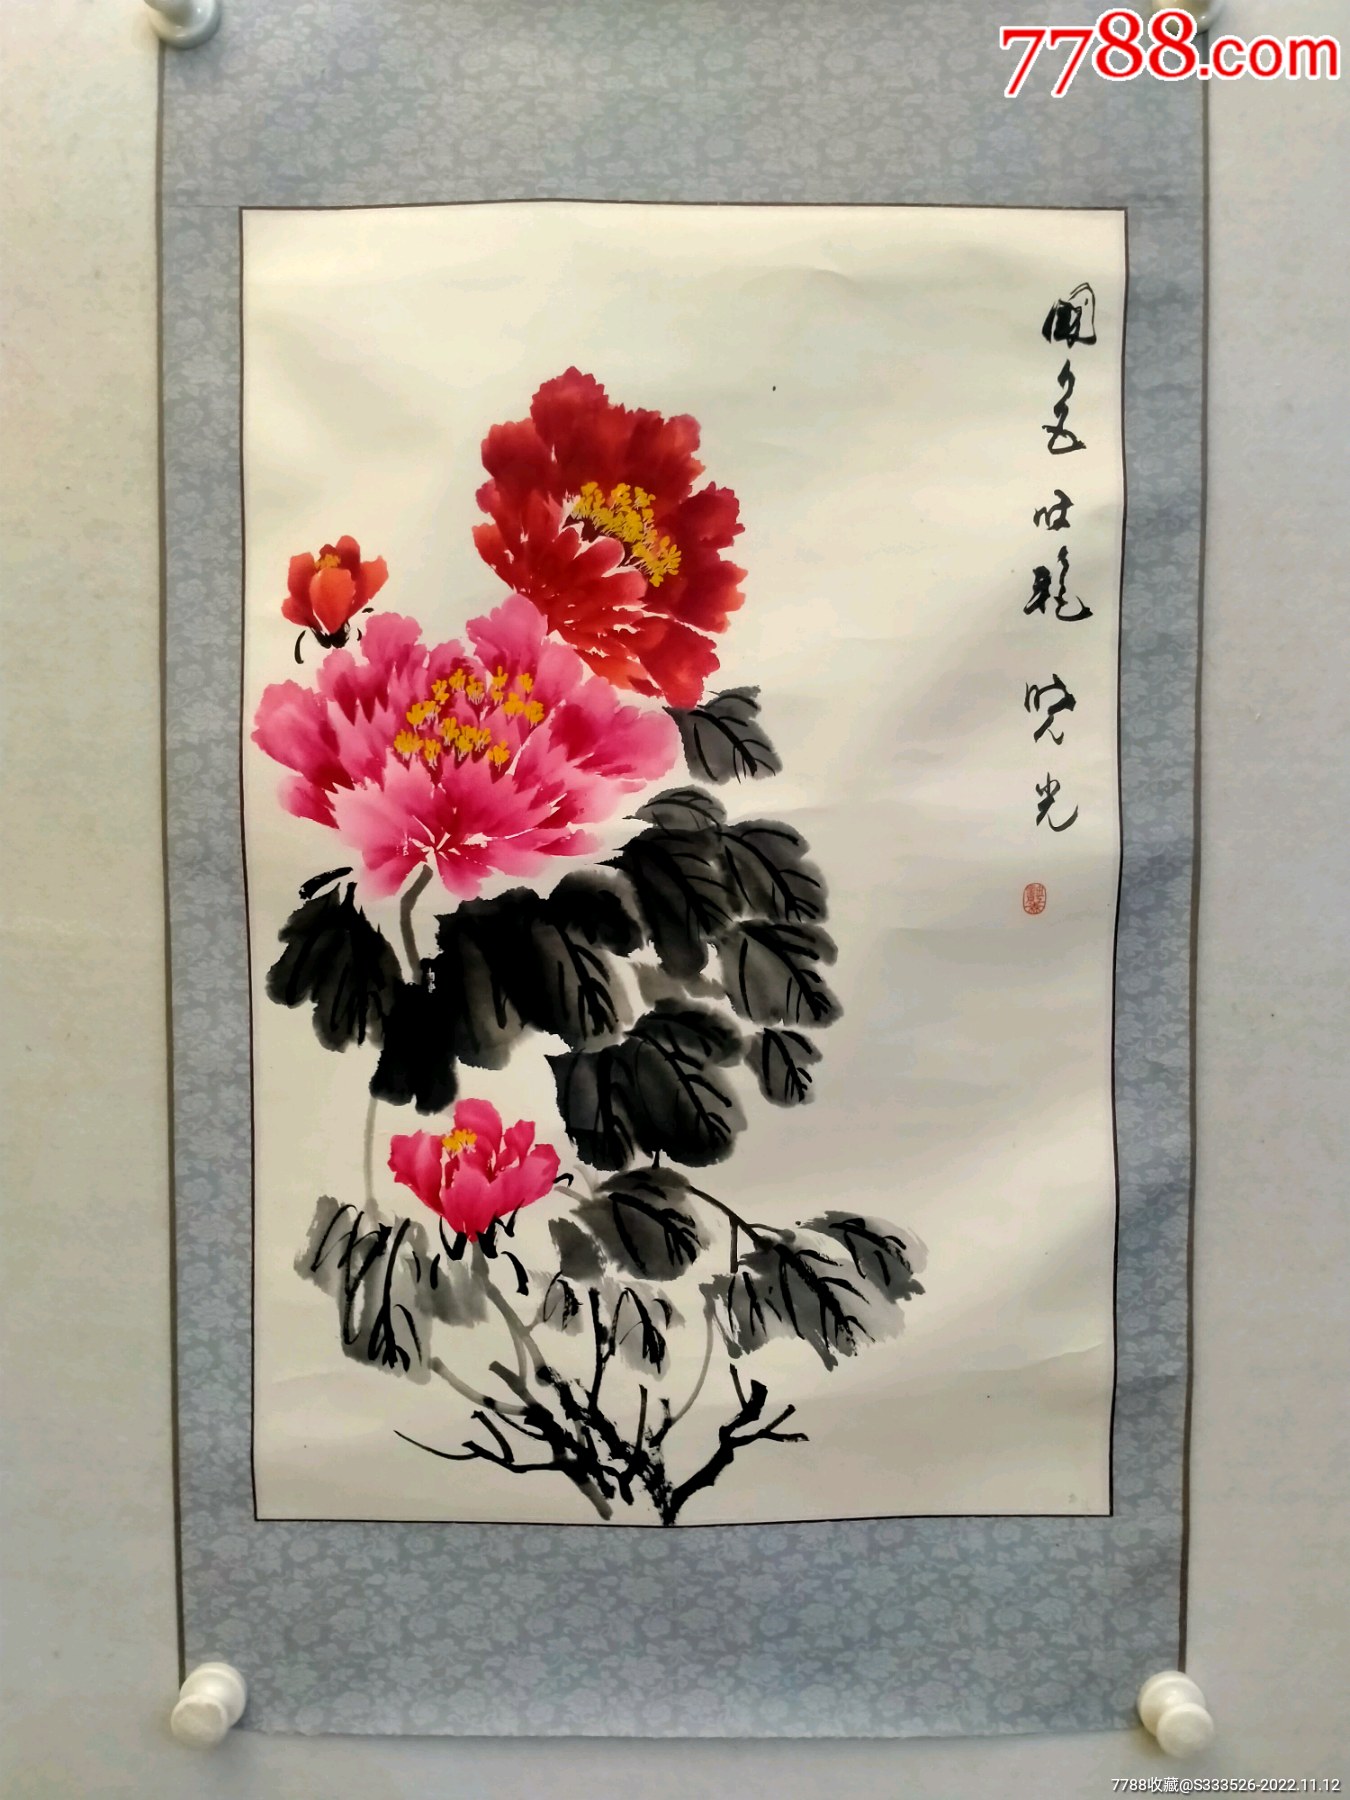 7788.com
國色
晓光
7788收藏@S333526-2022.11.12